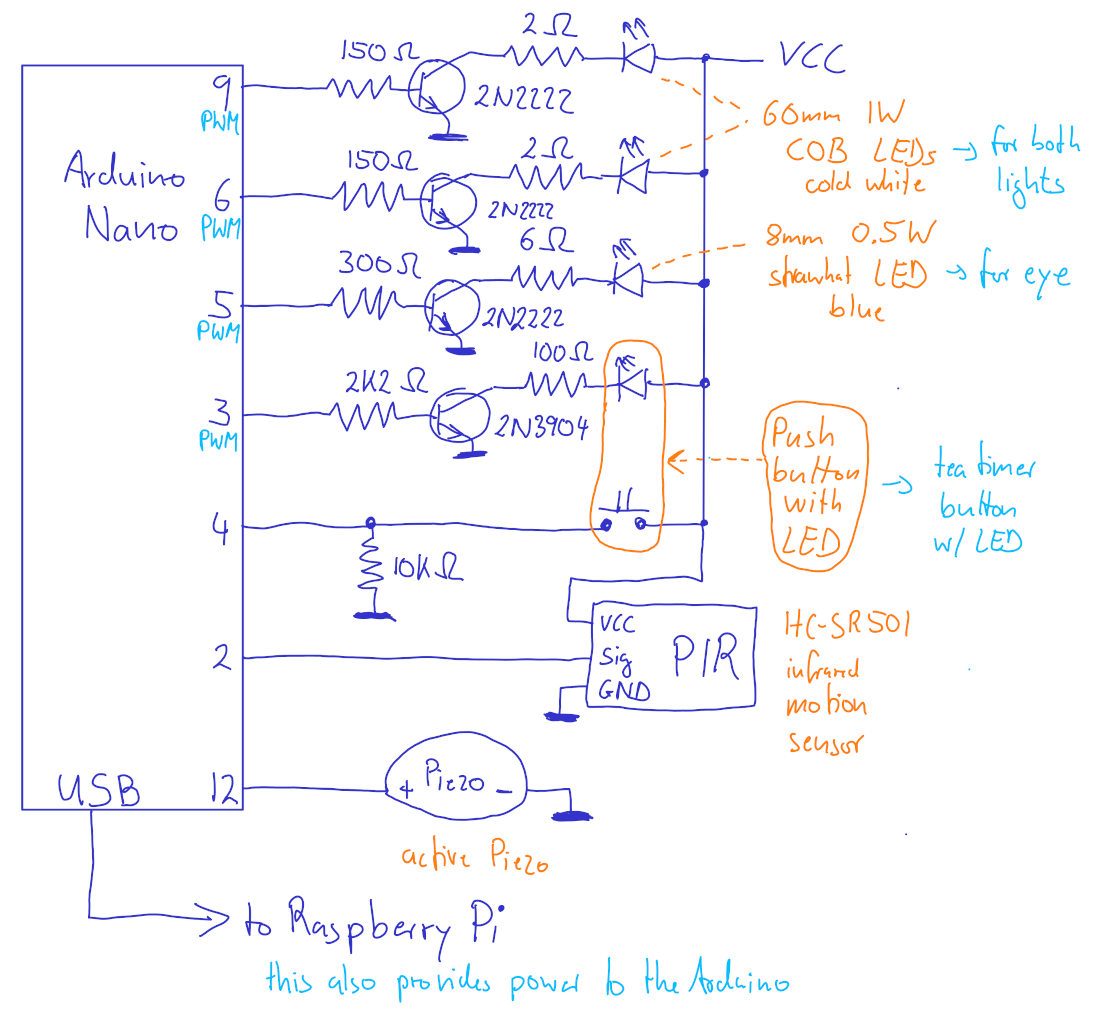 2Ω
150Ω
VCC
9
PWM
2N2222
60mm 1W
COB LEDs → for both
cold white
lights
Arduino
Nano
150Ω
2Ω
6
PWM
2N2222
6Ω
8mm 0.5W
strawhat LED → for eye
blue
300Ω
5
PWM
2N2222
100Ω
2K2 Ω
3
PWM
2N3904
Push
button
with
LED
→ tea timer
button
w/ LED
4
10KΩ
VCC
Sig
GND
PIR
HC-SR501
infrared
motion
sensor
2
USB
12
+ Piezo -
active Piezo
to Raspberry Pi
this also provides power to the Arduino